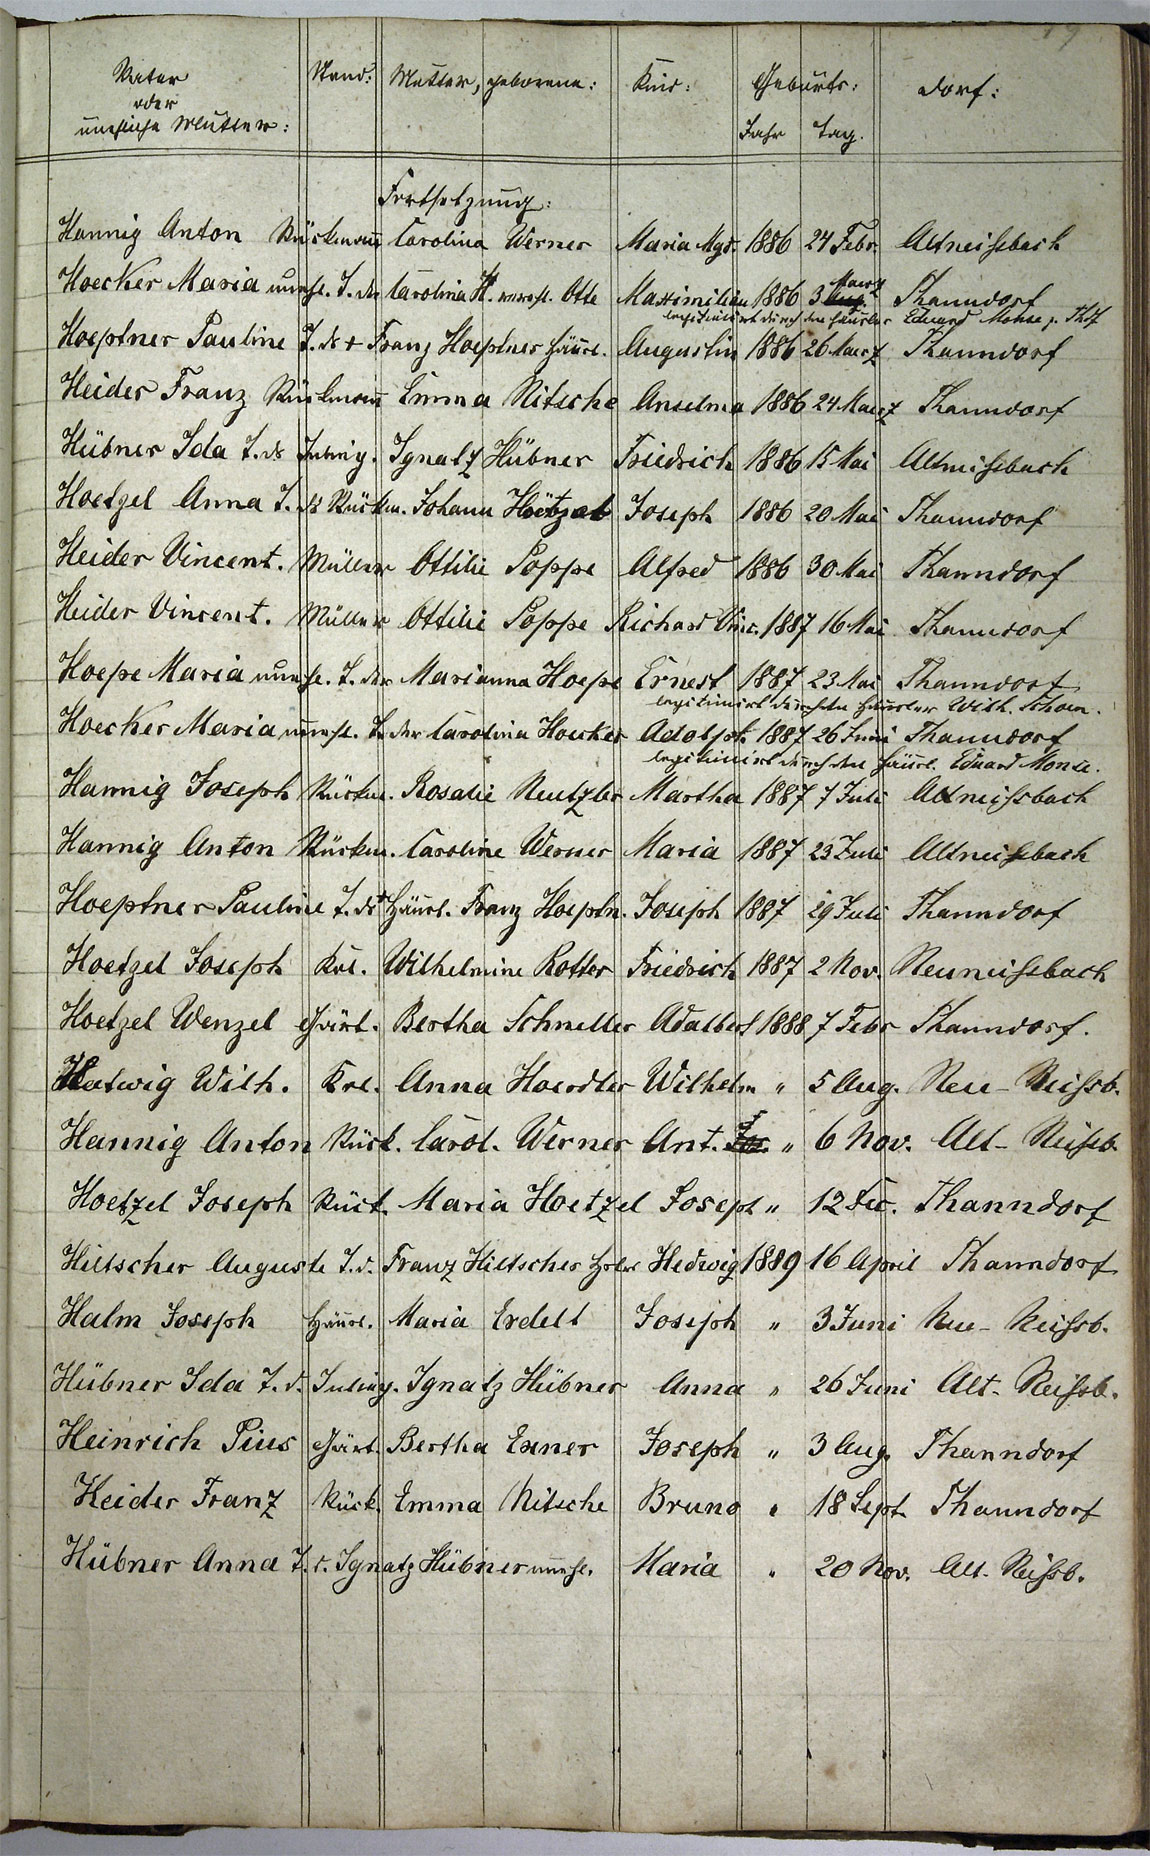 19
Vater Stand: Mutter, geborene: Kind: Geburts: Dorf:
oder
uneheliche Mutter: Jahr Tag.
Fortsetzung:
Hannig Anton Rückmann Carolina Werner Maria Mgd. 1886 24 Febr. Altneissbach
Hoecker Maria unehl. T. der Carolina H. verehl. Otte Maximilian 1886 3 Maerz Thanndorf
legitimirt durch den Häusler Eduard Mohse z. Thdf
Hoeptner Pauline T. ds + Franz Hoeptner Häusl. Augustin 1886 26 Maerz Thanndorf
Heider Franz Rückmann Emma Nitsche Anselma 1886 24 Maerz Thanndorf
Hübner Ida T. ds Inlieg. Ignatz Hübner Friedrich 1886 15 Mai Altneissbach
Hoetzel Anna T. ds Rückm. Johann Hötzel Joseph 1886 20 Mai Thanndorf
Heider Vincent. Müller Ottilie Poppe Alfred 1886 30 Mai Thanndorf
Heider Vincent. Müller Ottilie Poppe Richard Vinc. 1887 16 Mai Thanndorf
Hoepe Maria unehe. T. der Marianna Hoepe Ernest 1887 23 Mai Thanndorf
legitimirt durch den Häusler Wilh. Schoen.
Hoecker Maria unehl. T. der Carolina Hoecker Adolph 1887 26 Juni Thanndorf
legitimirt durch den Häusl. Eduard Monse.
Hannig Joseph Rückm. Rosalie Neutzler Martha 1887 7 Juli Altneissbach
Hannig Anton Rückm. Caroline Werner Maria 1887 23 Juli Altneissbach
Hoeptner Pauline T. ds + Häusl. Franz Hoeptn. Joseph 1887 29 Juli Thanndorf
Hoetzel Joseph Kol. Wilhelmine Rotter Friedrich 1887 2 Nov. Neuneissbach
Hoetzel Wenzel Gärt. Bertha Schneller Adalbert 1888 7 Febr Thanndorf.
Hatwig Wilh. Kol. Anna Haerdler Wilhelm " 5 Aug. Neu-Neissb.
Hannig Anton Rück. Carol. Werner Ant. Jos. " 6 Nov. Alt-Neissb.
Hoetzel Joseph Rück. Maria Hoetzel Joseph " 12 Dec. Thanndorf
Hiltscher Auguste T. d. Franz Hiltscher Hedwig 1889 16 April Thanndorf
Halm Joseph Häusl. Maria Exdelt Joseph " 3 Juni Neu-Neissb.
Hübner Ida T. d. Inlieg. Ignatz Hübner Anna " 26 Juni Alt-Neissb.
Heinrich Pius Gärt. Bertha Exner Joseph " 3 Aug. Thanndorf
Heider Franz Rück. Emma Nitsche Bruno " 18 Sept. Thanndorf
Hübner Anna T. d. Ignatz Hübner unehl. Maria " 20 Nov. Alt-Neissb.